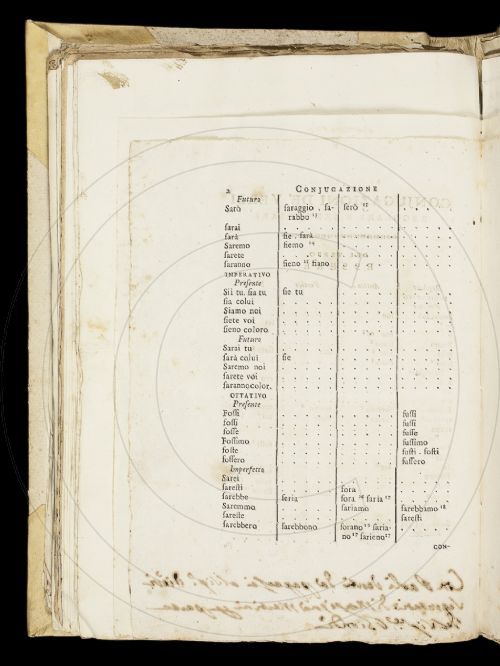 2 CONJUGAZIONE
Futuro
Sarò saraggio . sa- serò ¹²
rabbo ¹³
sarai
sarà fie . sarà
Saremo fiemo ¹⁴
sarete
saranno fieno ¹⁵ fiano
IMPERATIVO
Presente
Sii tu. sia tu sie tu
sia colui
Siamo noi
siete voi
sieno coloro
Futuro
Sarai tu
sarà colui fie
Saremo noi
sarete voi
saranno color.
OTTATIVO
Presente
Fossi fussi
fossi fussi
fosse fusse
Fossimo fussimo
foste fusti . fosti
fossero fussero
Imperfetto
Sarei
saresti fora
sarebbe seria fora ¹⁶ saria ¹⁷
Saremmo sariamo sarebbamo ¹⁸
sareste saresti
sarebbero sarebbono forano ¹⁶ saria-
no ¹⁷ sarieno ¹⁷
CON-